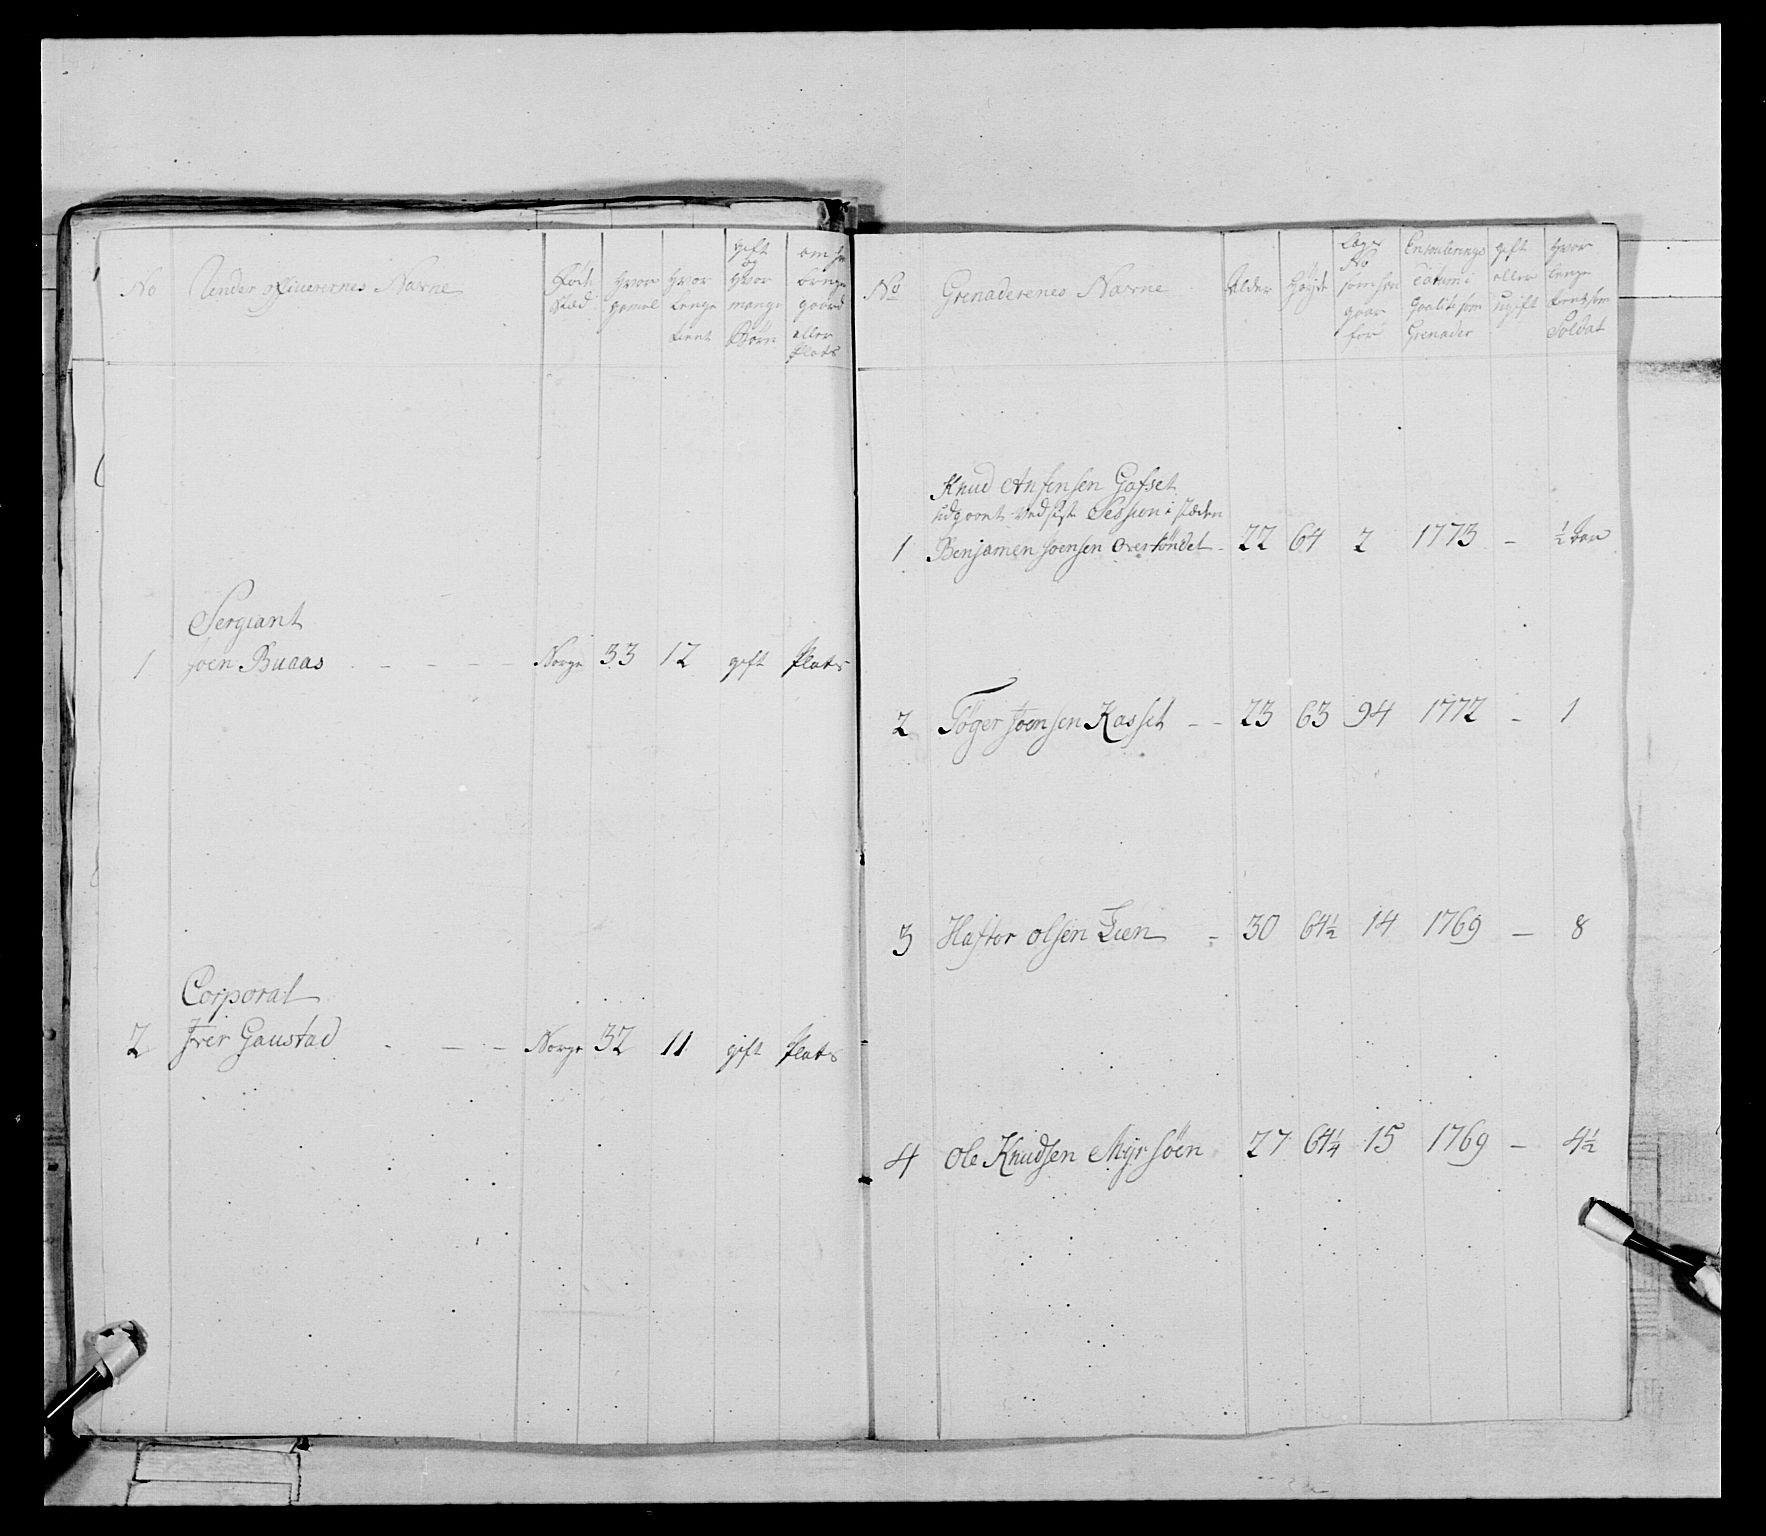 No
Under officierernes Navne
Føde Stad
Hvor gamel
Hvor lenge tient
gift og Hvor mange Børn
gaard eller Plads
Sergiant
1 Joen Buaas - - - - Norge 33 12 gift Plads
Corporal
2 Iver Gaustad - - - Norge 32 11 gift Plads
No
Grenaderenes Navne
Alder
Høyde
Lægs No som han gaar for
datum i Qualité som Grenader
gift eller ugift
Hvor lenge tient som Soldat
Knud
udgaaet ved sidste Session i stæden
1 Benjamen Joensen - 22 64 2 1773 - ½
2 Tøger Joensen Kasset - - 23 63 94 1772 - 1
3 Haftor Olsen Lien - 30 64½ 14 1769 - 8
4 Ole Knudsen Myrsøen 27 64¼ 15 1769 - 4½